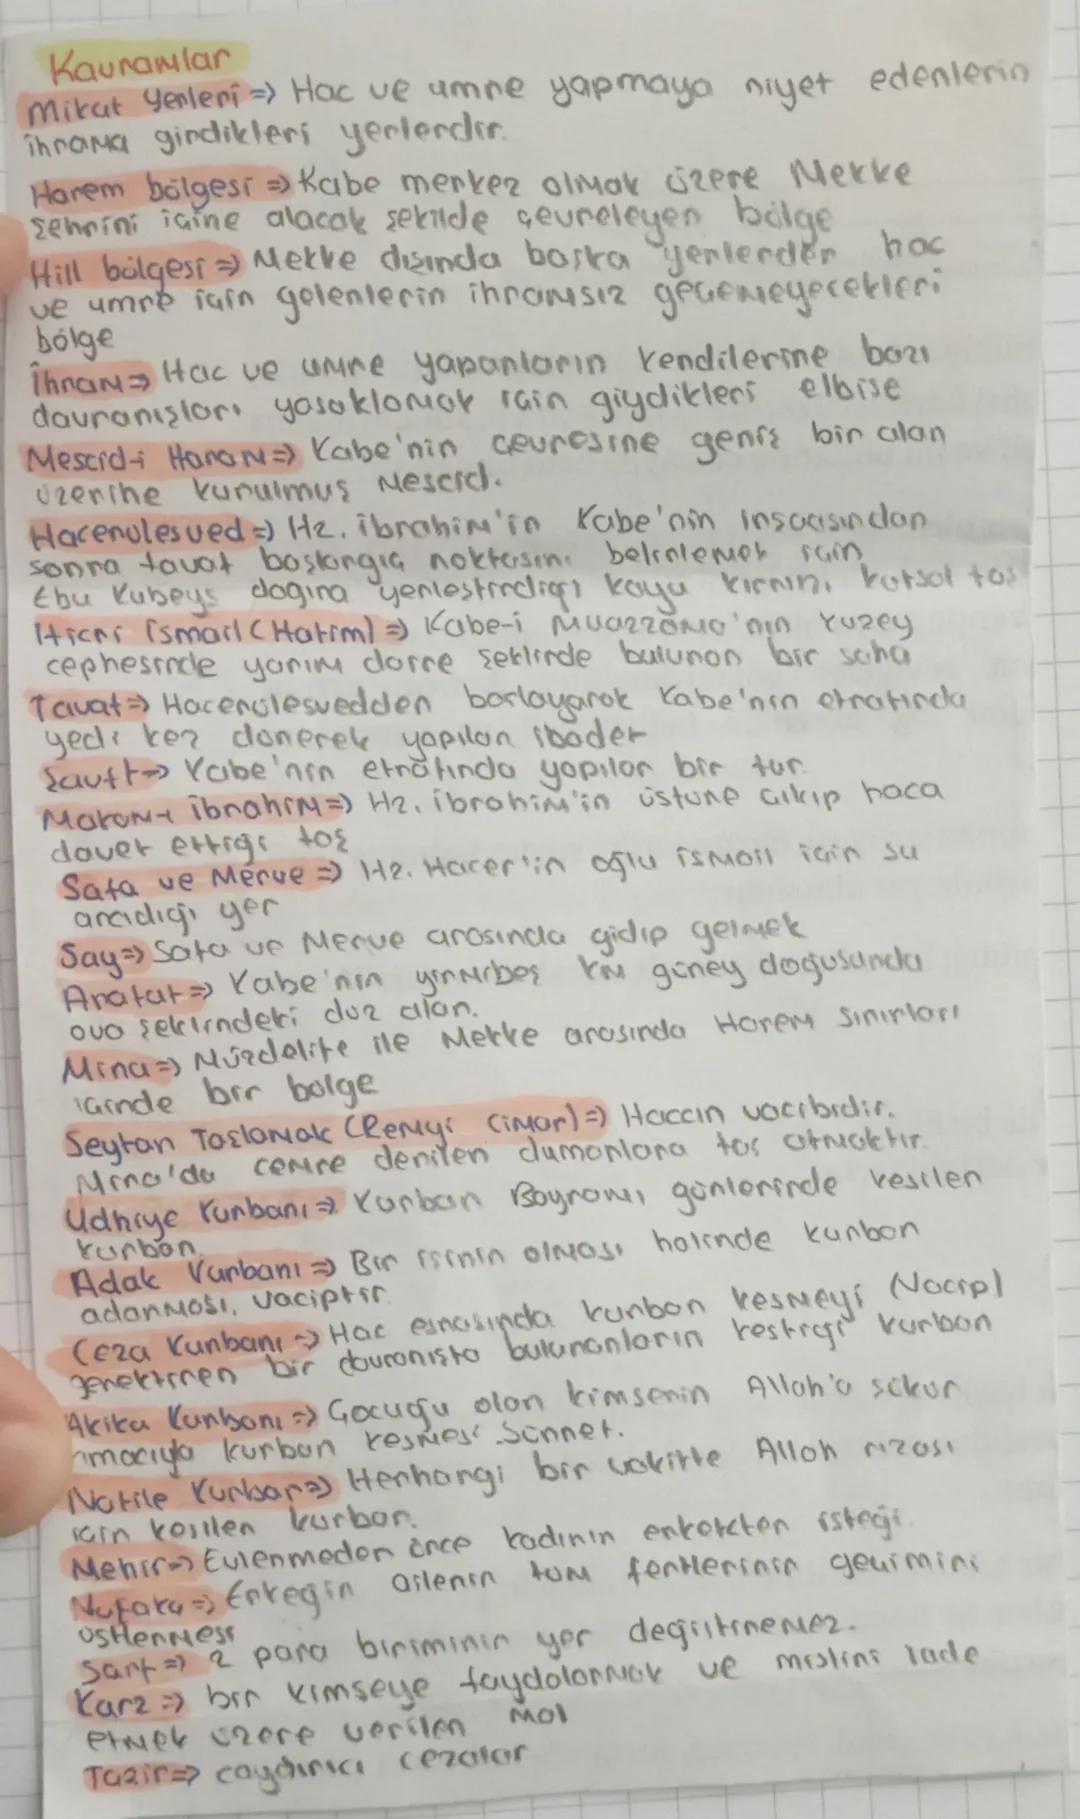 Kavramlar
Mikat Yerleri => Hac ve umre yapmaya niyet edenlerin
ihrama girdikleri yerlerdir.
Harem bölgesi => Kabe merkez olmak üzere Mekke
şehrini içine alacak şekilde çevreleyen bölge
Hill bölgesi => Mekke dışında başka yerlerden hac
ve umre için gelenlerin ihramsız geçemeyecekleri
bölge
İhram => Hac ve umre yapanların kendilerine bazı
davranışları yasaklamak için giydikleri elbise
Mescid-i Haram => Kabe'nin çevresine geniş bir alan
üzerine kurulmuş Mescid.
Hacerulesved => Hz. İbrahim'in Kabe'nin insaasından
sonra tavaf başlangıç noktasını belirlemek için
Ebu Kubeys dağına yerleştirdiği kaya kırnını kutsal taş
Hicri İsmail (Hatim) => Kabe-i Muazzama'nın kuzey
cephesinde yarım daire şeklinde bulunan bir saha
Tavaf => Hacerülesvedden başlayarak Kabe'nin etrafında
yedi kez dönerek yapılan ibadet
Şavft => Kabe'nin etrafında yapılan bir tur.
Makam-ı İbrahim => Hz. İbrahim'in üstüne çıkıp haca
davet ettiği taş
Safa ve Merve => Hz. Hacer'in oğlu İsmail için su
aradığı yer
Say => Safa ve Merve arasında gidip gelmek
Arafat => Kabe'nin yirmibeş km güney doğusunda
ova şeklindeki düz alan.
Mina => Müzdelife ile Mekke arasında Harem sınırları
içinde bir bölge
Şeytan Taşlamak (Remyi Cimar) => Haccın vacibidir.
Mina'da cemre denilen dumanlara taş atmaktır.
Udhiye kurbanı => Kurban Bayramı günlerinde kesilen
kurban.
Adak Kurbanı => Bir işinin olması halinde kurban
adanması, vaciptir.
Ceza Kurbanı => Hac esnasında kurban kesmeyi (Vacip)
gerektiren bir davranışta bulunanların kestiği kurban
Akika Kurbanı => Çocuğu olan kimsenin Allah'a şükür
amacıyla kurban kesmesi Sünnet.
Nafile Kurban => Herhangi bir vakitte Allah rızası
için kesilen kurban.
Mehir => Evlenmeden önce kadının erkekten isteği.
Nafaka => Erkeğin ailenin tüm fertlerinin geçimini
üstlenmesi
Sarf => 2 para biriminin yer değiştirmemez.
Karz => bir kimseye faydalanmak ve mislini iade
etmek üzere verilen mal
Tazir => caydırıcı cezalar